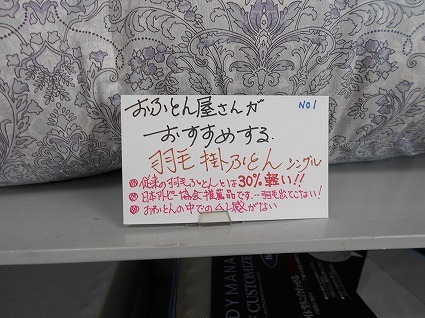 おふとん屋さんが
NO1
おすすめする、
羽毛掛ふとん シングル
従来の羽毛ふとんとは30%軽い!!
日本アトピー協会推薦品です…羽毛出てこない!
おふとんの中でのムレ感がない
DY MANA
CUSTOMIZE